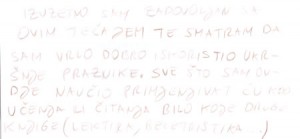 IZUZETNO SAM ZADOVOLJAN SA
OVIM TEČAJEM TE SMATRAM DA
SAM VRLO DOBRO ISKORISTIO USKR-
ŠNJE PRAZNIKE. SVE ŠTO SAM OV-
DJE NAUČIO PRIMJENJIVAT ĆU KOD
UČENJA ILI ČITANJA BILO KOJE DRUGE
KNJIGE (LEKTIRA, BELETRISTIKA...)